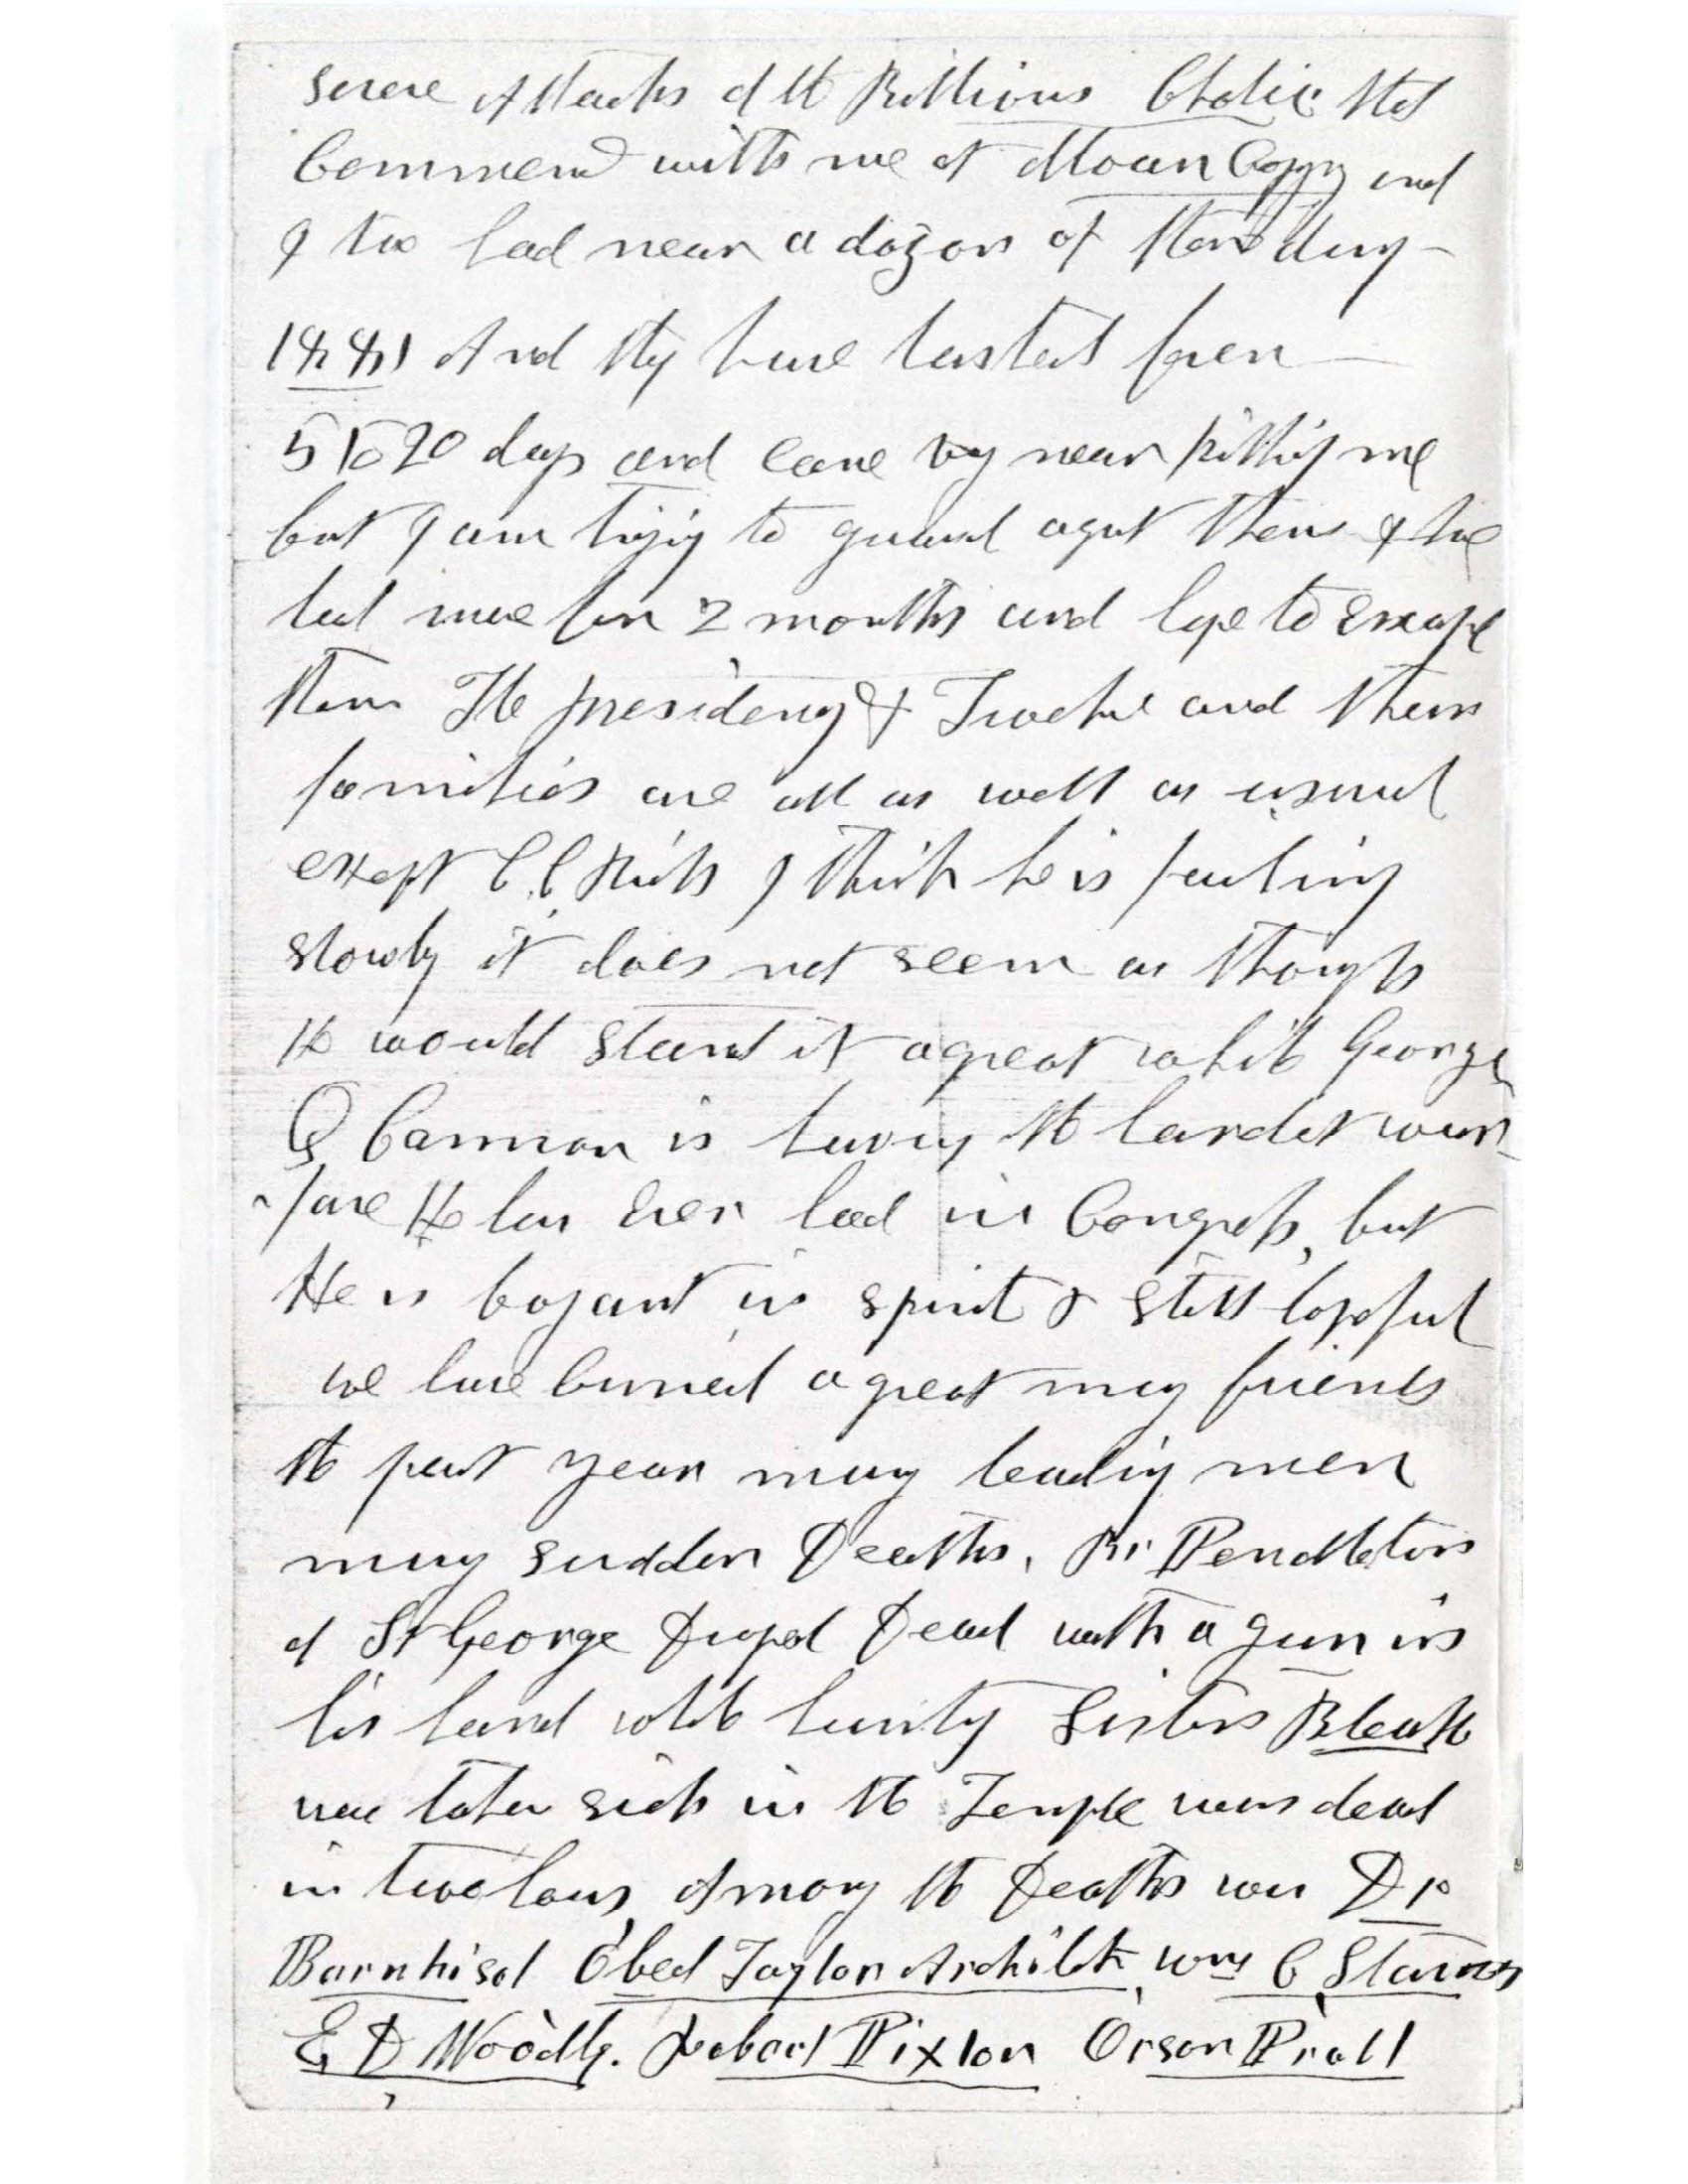 severe Attacks of the Billious Cholic that
Commencd with me at Moan Coppy and
I have had near a dozon of them during
1881 And they have lasted from
5 to 20 days and came vry near killing me
but I am trying to guard against them & have
had none for 2 months and hope to Escape
them The presidency & Twelve and their
families are all as well as usual
except C. C. Rich I think he is failing
slowly it does not seem as though
He would stand it a great while George
Q Cannon is having the hardest war
fare He has Ever had in Congress, but
He is boyant in spirit & still hopeful
we have buried a great many friends
the past year many leading men
many sudden Deaths. Br Pendleton
of St George Droped Dead with a gun in
his hand while hunting Sister Bleak
was taken sick in the Temple was dead
in two hours Among the Deaths was Dr
Barnhisel Obed Taylor Architect, Wm C Staines
E D Woolly. Robert Pixton Orson Pratt